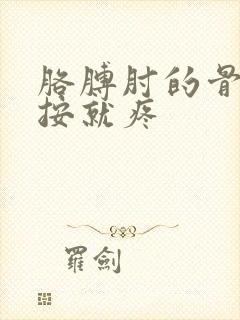 胳膊肘的骨
按就疼
羅劍